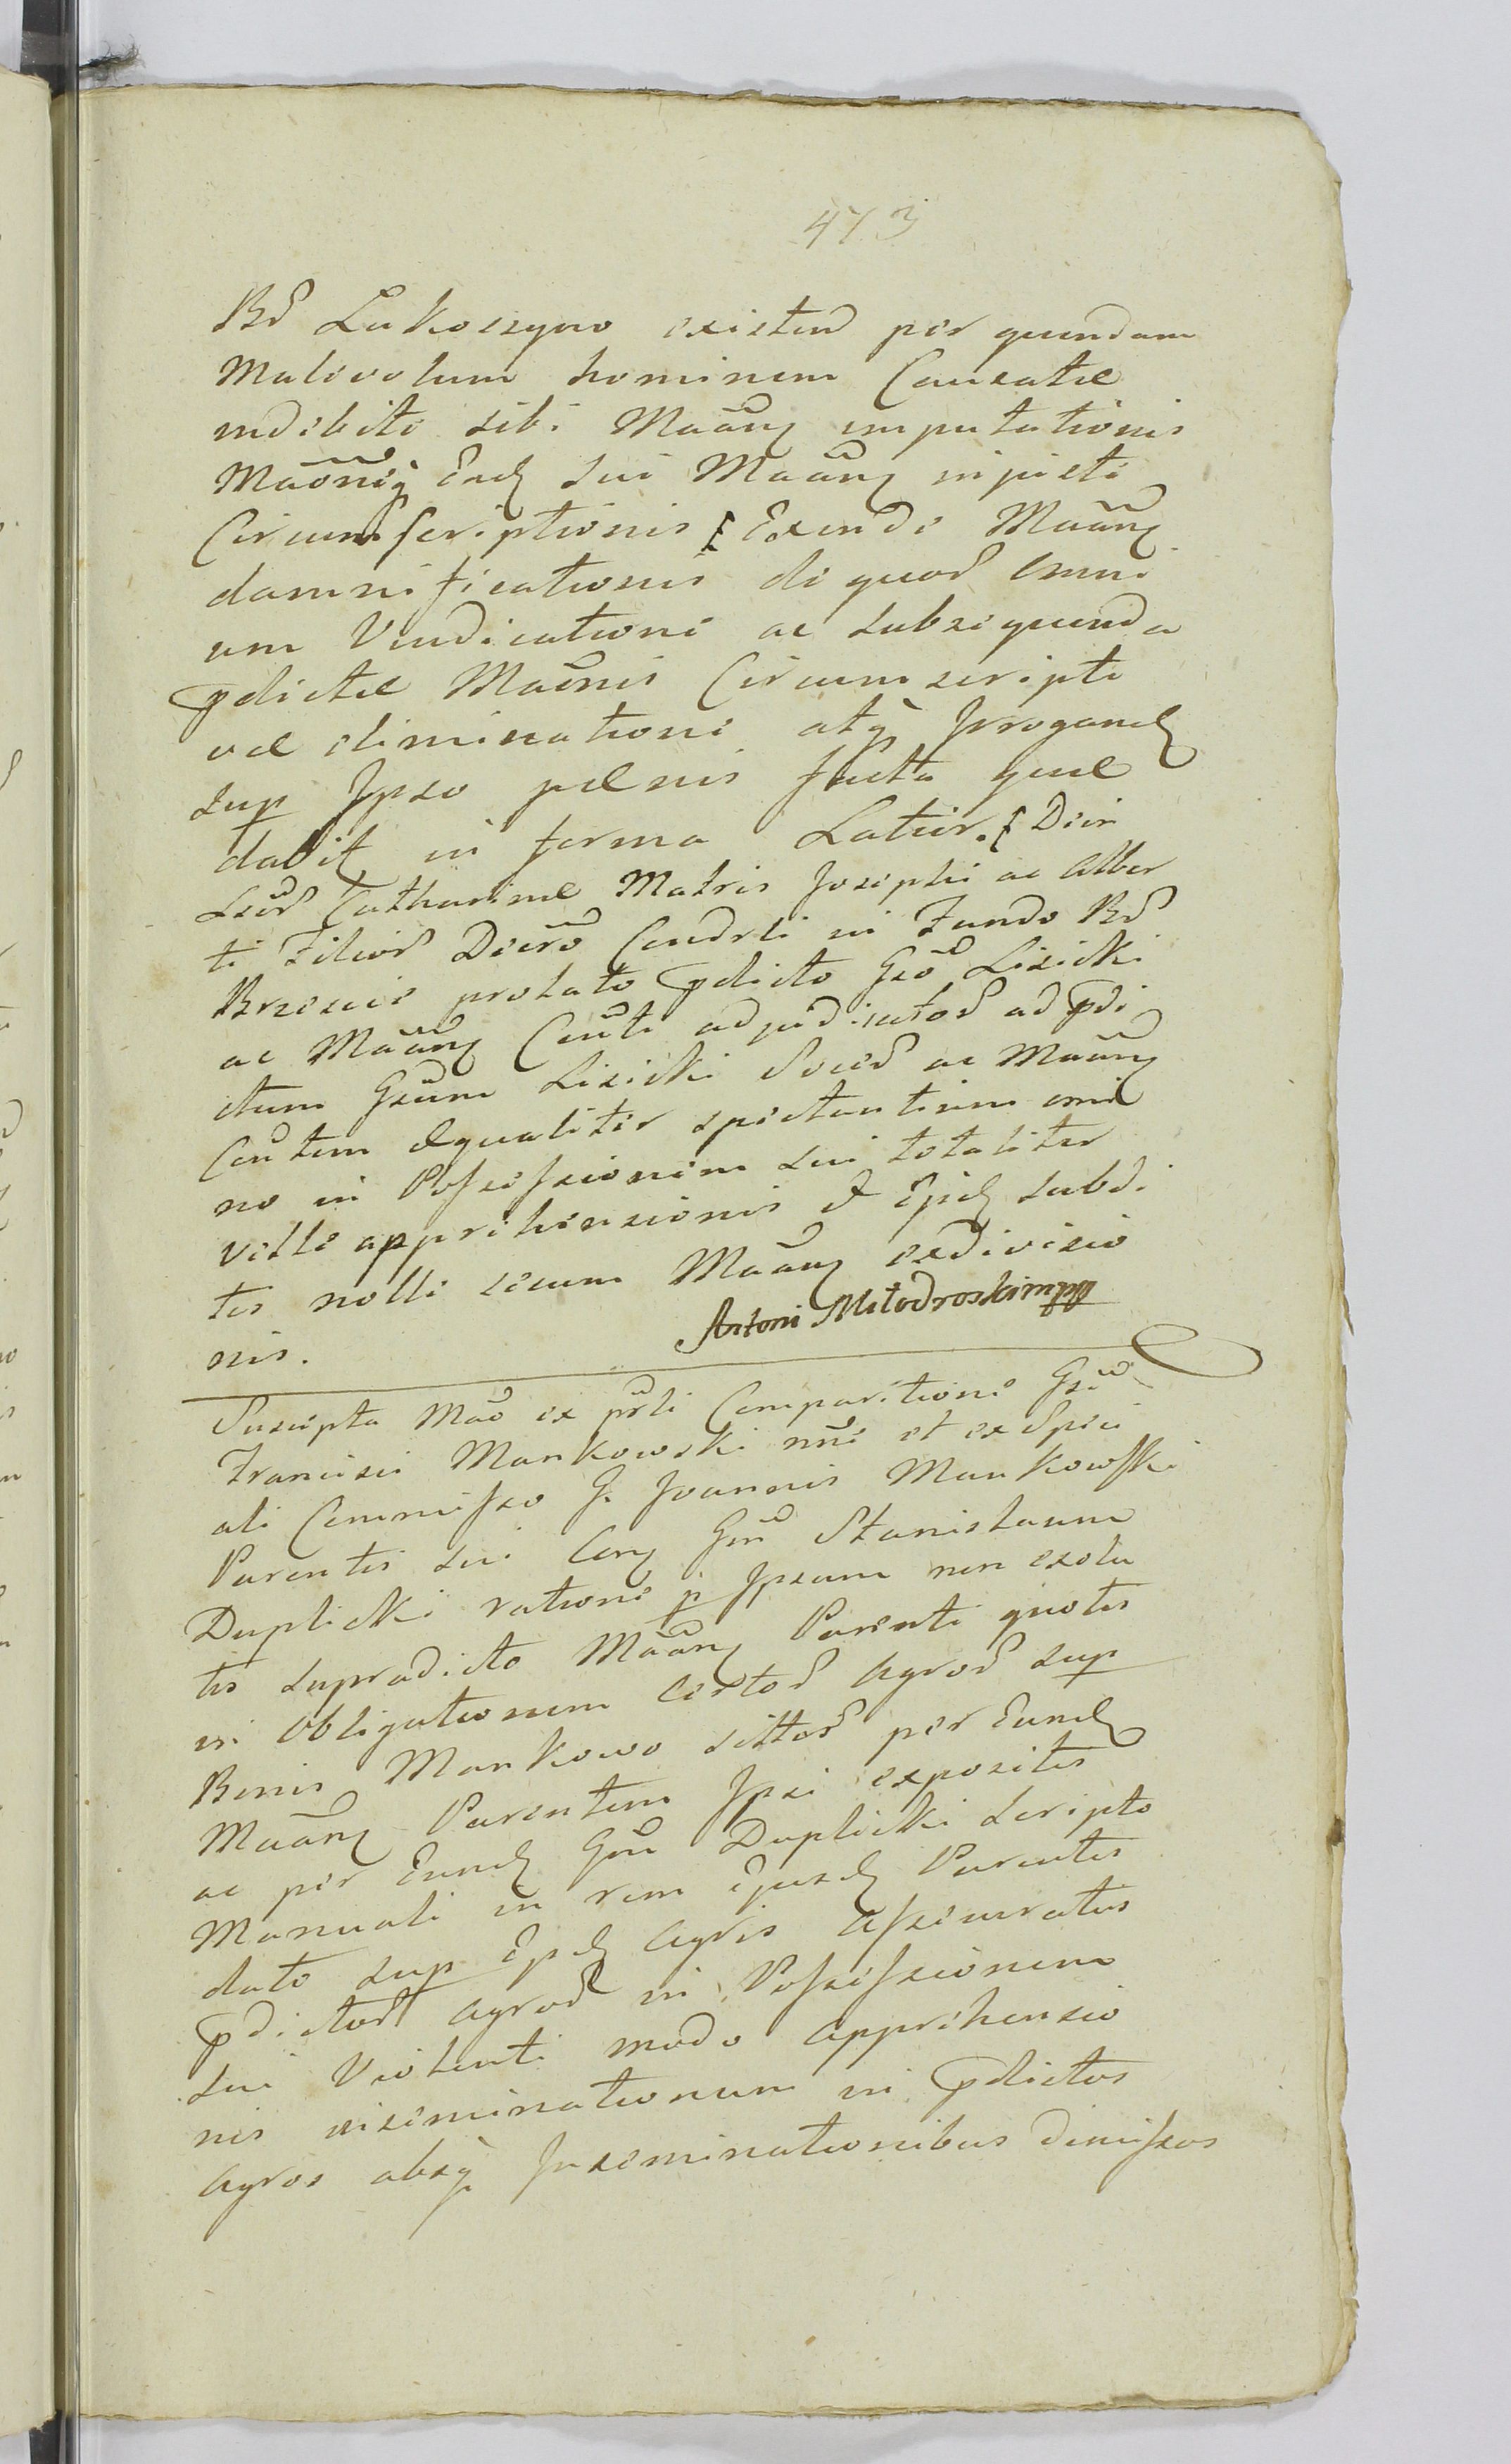 473
Bd Lukoszyno existend per quendam
Malevolum hominem Causatae
indebite sibi Maãnq imputationis
Maõnisq Eadq sui Maãnq injuste
Circumscriptionis Exinde Maãnq
damnificationis de quod omni
um Vindicatione ac subsequenda
pdictae Maõnis Circumscripti
vae eliminatione atq Irrogandq
sup Ipso paenis facta quae
dabit in forma Latior. Dein
Catharinae Matris Josephi ac Alber
ti Filiod Decro Condrli in Fundo Bd
Brzescie prolato pdicto Gso Lisicki
ac Maãnq Conti adjudicatod ad pdi
ctum Gsum Lisicki Soced ac Maãnq
Contem aequaliter spectantium omi
no in Possessionem sui totaliter
velle apprehensionis et Epdq subdi
tis nolle secum Maãnq exdivisio
nis.
Antoni Miłodroski mpp
Suscepta Mao ex prli Comparitione Gsi
Francisci Mankowski nne et ex Speci
ali Commisso G. Joannis Mankowski
Parentis sui Conq Gm Stanislaum
Duplicki ratione p Ipsum non exolu
tis supradicto Maãnq Parenti quotis
in Obligationem certod Agrod sup
Bonis Mankowo sittod per Eundq
Maãnq Parentem Ipsi expositis
ac per Eundq Gm Duplicki scripto
Manuali in rem Ejusdq Parentis
dato sup Epdq Agris Assecuratis
pdictod Agrod in Possessionem
sui Violenti modo Apprehensio
nis inseminationum in pdictos
Agros absq Inseminationibus dimissos